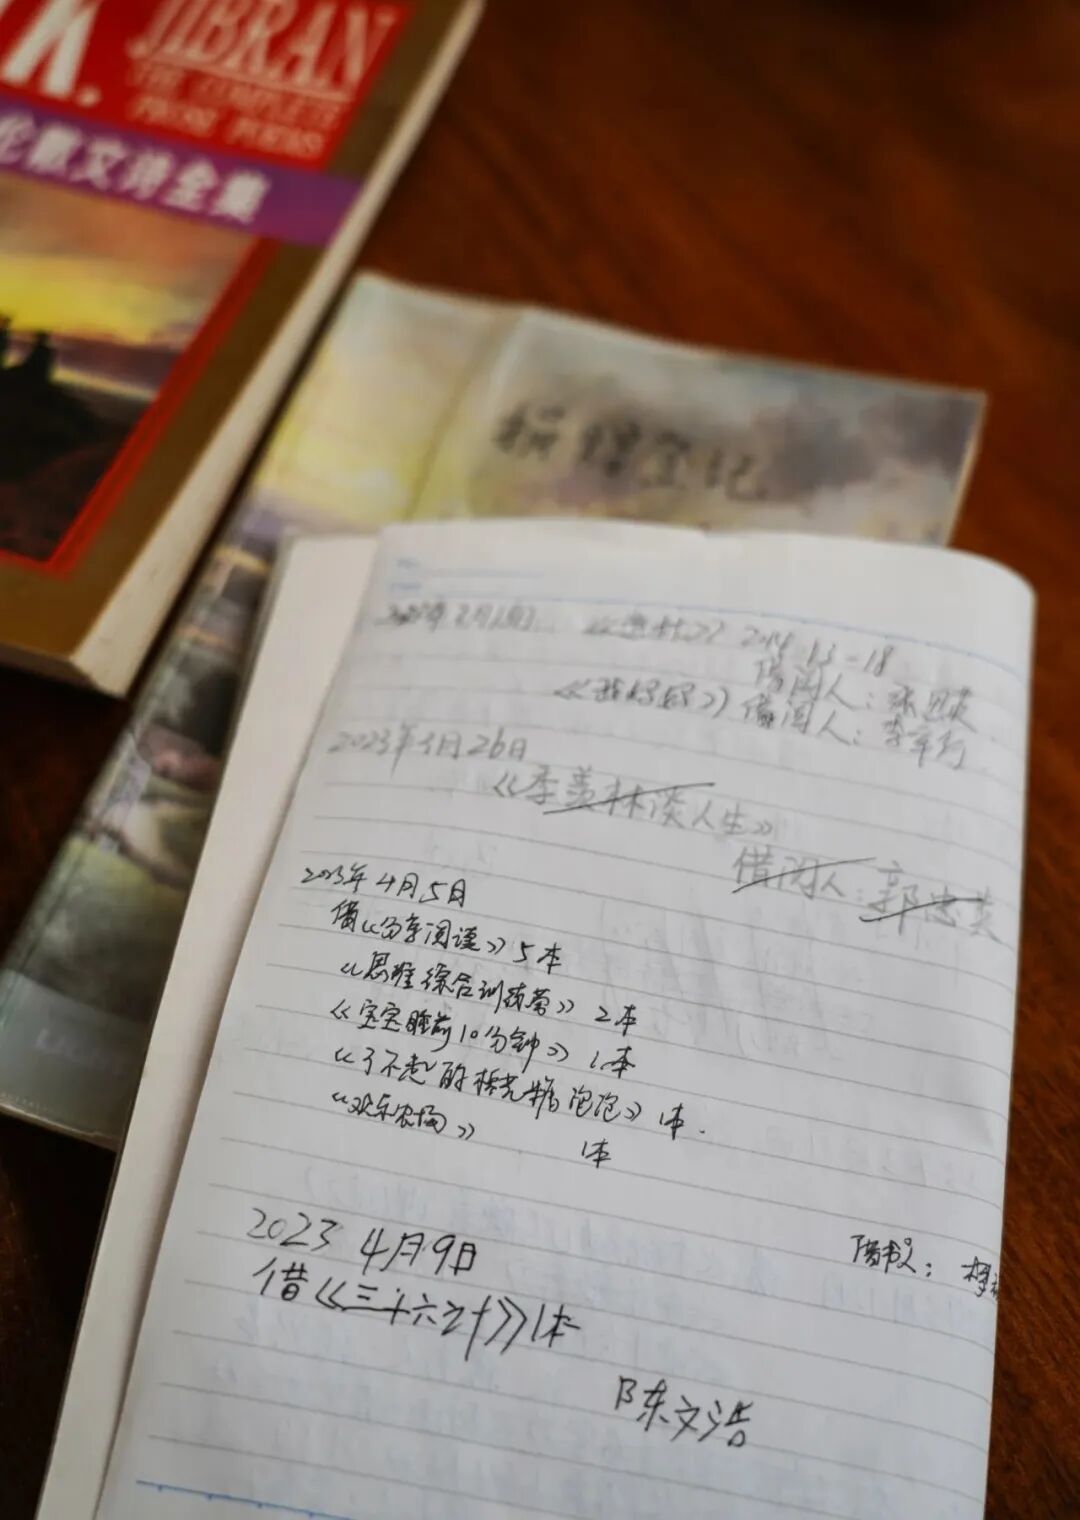 K.
JIBRAN
THE COMPLETE
PROSE POEMS
伦散文诗全集
登记
2014.13-18
借阅人：张
借阅人：李
2023年1月26日
《季羡林谈人生》
借阅人：郭忠英
2023年4月5日
借《分享阅读》5本
《思维综合训练营》2本
《宝宝睡前10分钟》1本
《了不起的棉花糖泡泡》1本.
《欢乐农场》
1本
借书人：
2023 4月9日
借《三十六计》1本
陈文浩